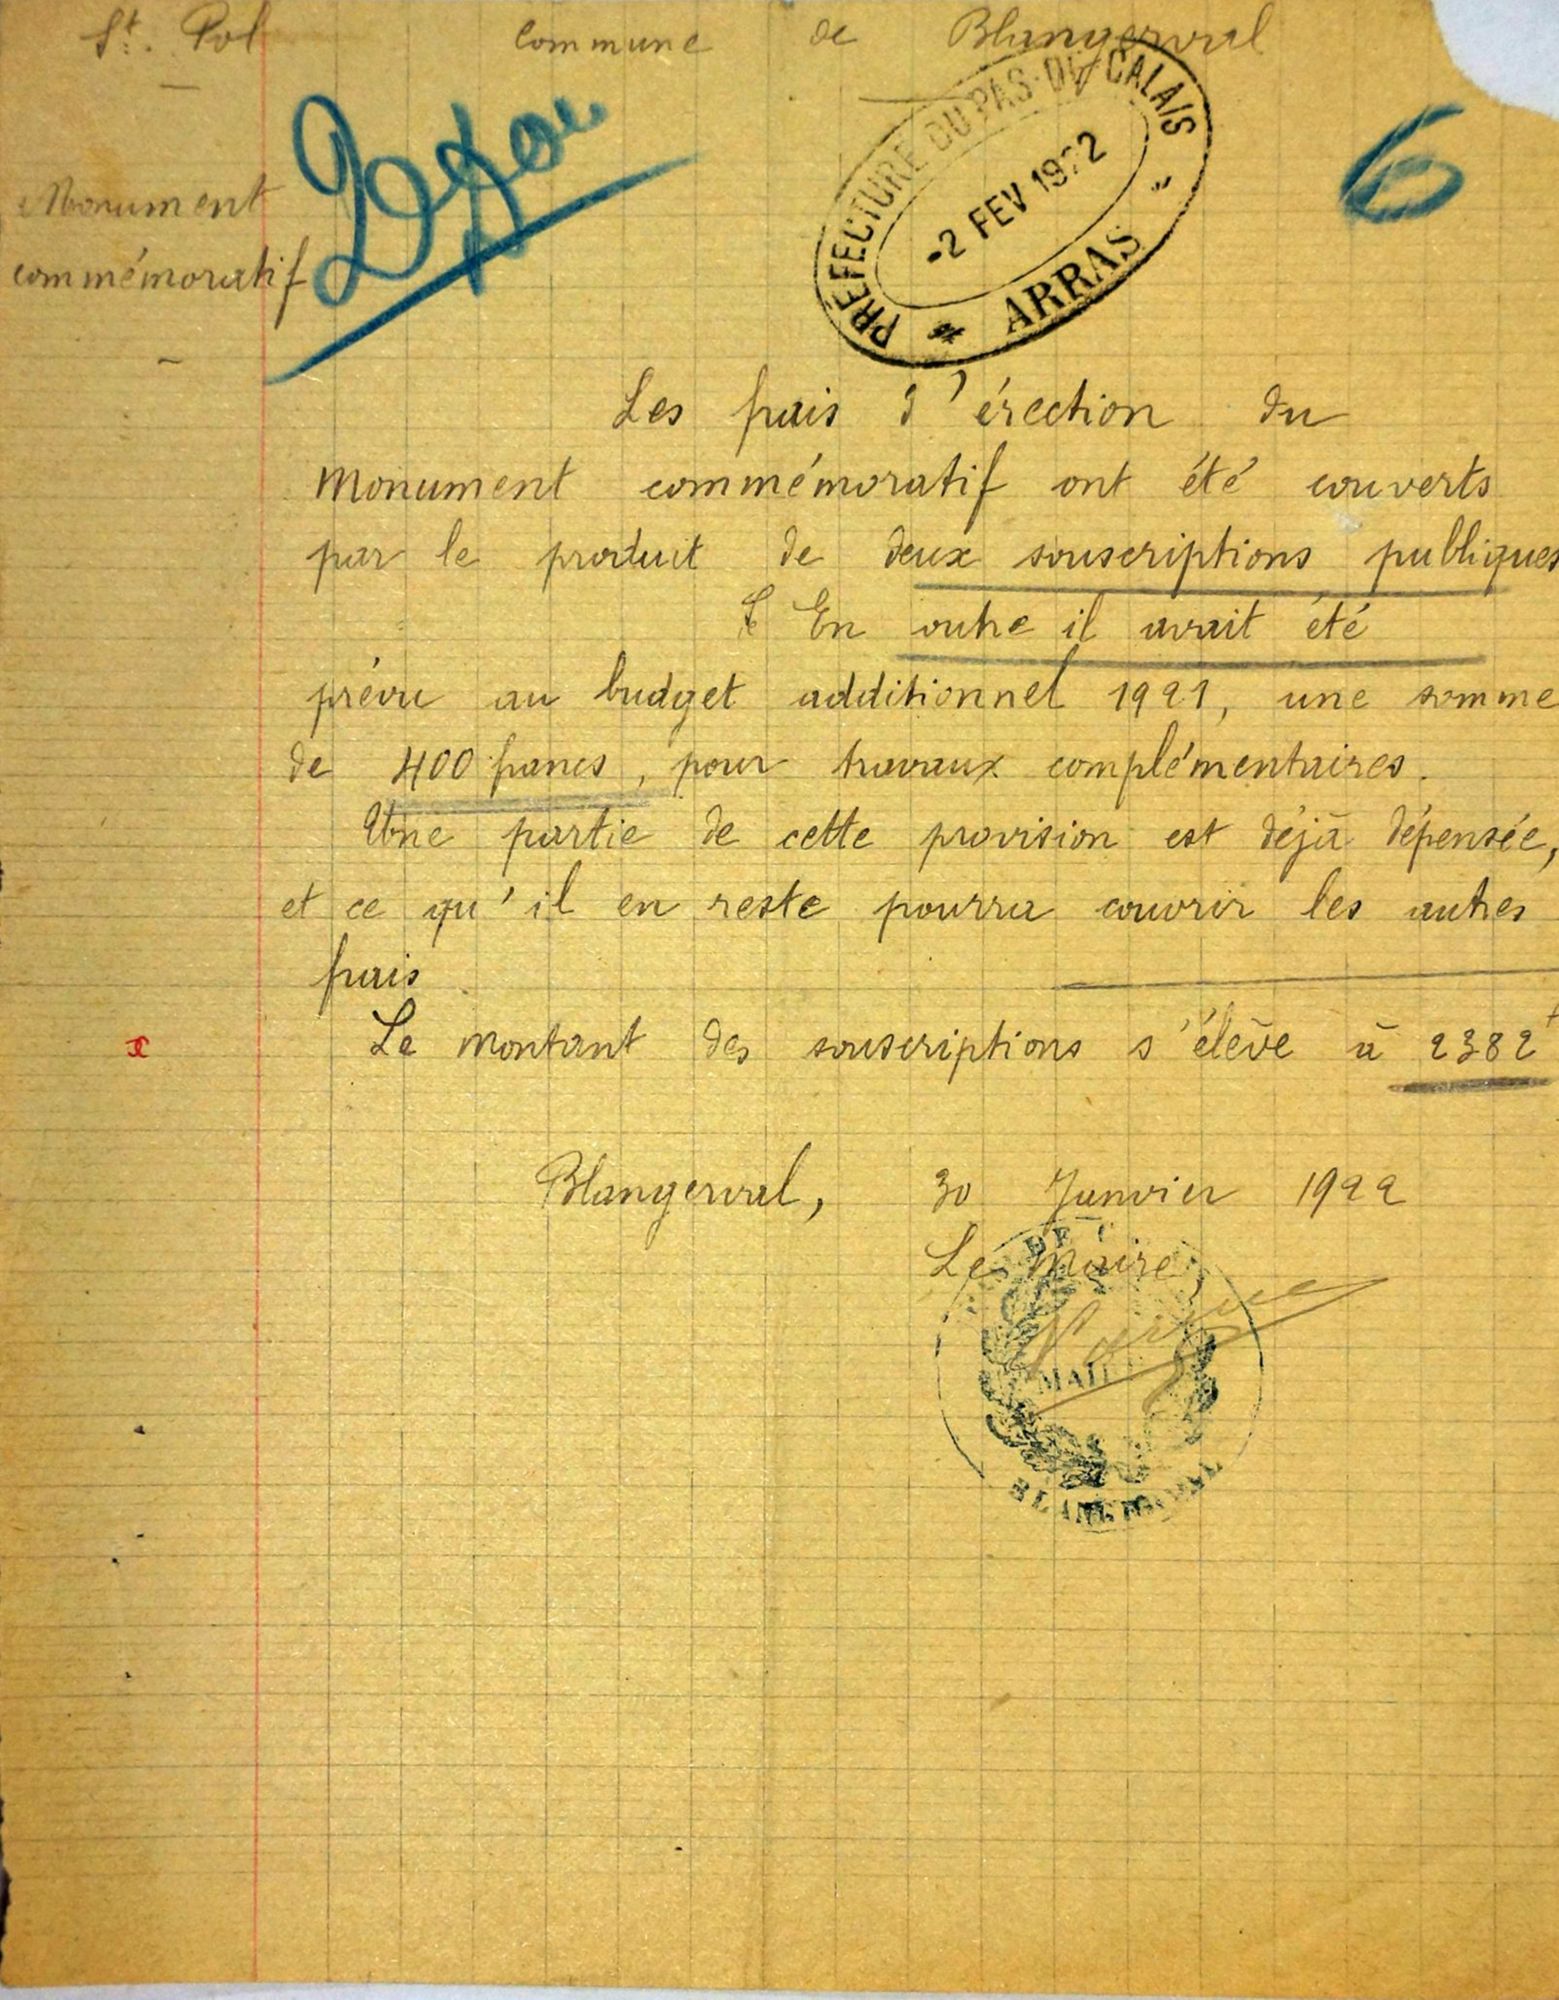 St. Pol Commune de Blangerval
PREFECTURE DU PAS-DE-CALAIS
-2 FEV 1922
* ARRAS *
6
Monument
commémoratif
Les frais d'érection du
Monument commémoratif ont été couverts
par le produit de deux souscriptions publiques
En outre il avait été
prévu au budget additionnel 1921, une somme
de 400 francs, pour travaux complémentaires.
Une partie de cette provision est déjà dépensée,
et ce qu'il en reste pourra couvrir les autres
frais
x Le montant des souscriptions s'élève à 2382f
Blangerval, 30 Janvier 1922
Le Maire
MAIRIE
BLANGERVAL